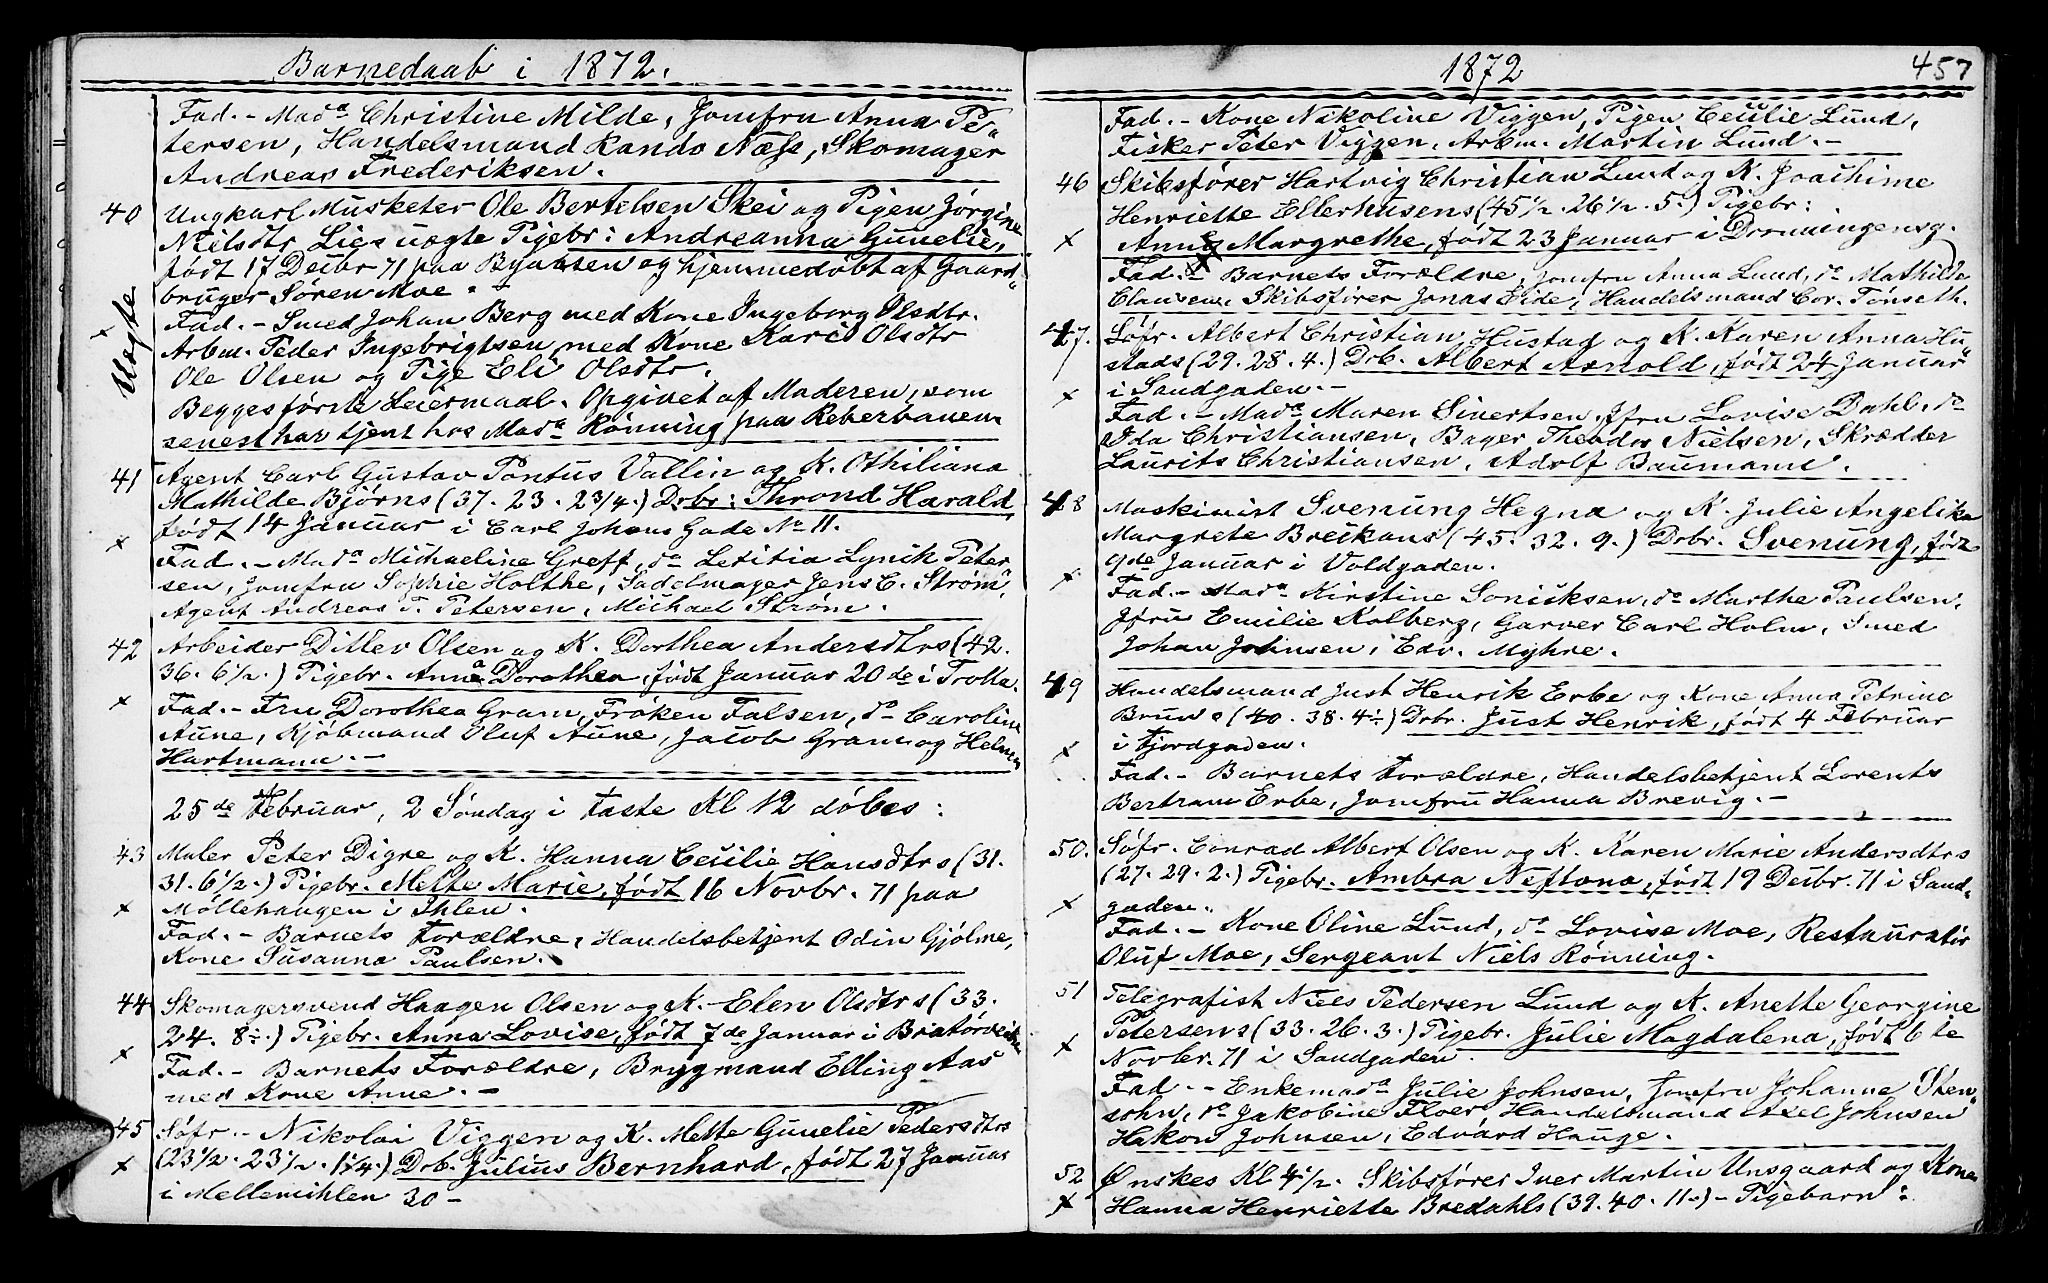 Barnedaab i 1872.
Fad. - Mad.a Christine Milde, Jomfru Anna Pe-
tersen, Handelsmand Rando Næss, Skomager
Andreas Frederiksen.
40 Ungkarl Musketer Ole Bertelsen Skei og Pigen Jørgine
Nielsdtr Lies uægte Pigebr: Andreanna Gunelie,
født 17 Decbr 71 paa Byaasen og hjemmedøbt af Gaard-
bruger Søren Moe.
Uægte
Fad. - Smed Johan Berg med Kone Ingeborg Olsdtr.
Arbm. Peder Ingebrigtsen med Kone Kari Olsdtr
Ole Olsen og Pige Eli Olsdtr.
Begges første Leiermaal. Opgivet af Moderen, som
senest har tjent hos Mad.a Rønning paa Reberbanen
41 Agent Carl Gustav Pontus Vallin og K. Othiliana
Mathilde Bjørns (37. 23. 2 3/4.) Drbr: Thrond Harald
født 14 Januar i Carl Johans Gade No 11.
Fad. - Mad.a Michaeline Greff, do Letitia Lynik Peter-
sen, Jomfru Sophie Holthe, Sadelmager Jens C. Strøm,
Agent Andreas T. Petersen, Michael Strøm.
42 Arbeider Ditlev Olsen og K. Dorthea Andersdtrs (42.
36. 6 1/2.) Pigebr. Anna Dorothea, født Januar 20de i Trolla.
Fad. - Fru Dorothea Gram, Frøken Falsen, do Caroline
Aune, Kjøbmand Oluf Aune, Jacob Gram og Helmer
Hartmann. -
25de Februar, 2 Søndag i Faste Kl 12 døbes:
43 Maler Peter Digre og K. Hanna Cecilie Hansdtrs (31.
31. 6 1/2.) Pigebr. Mette Marie, født 16 Novbr. 71 paa
Møllehaugen i Ihlen.
Fad. - Barnets Forældre, Handelsbetjent Odin Gjølme,
Kone Susanna Paulsen.
44 Skomagersvend Haagen Olsen og K. Elen Olsdtrs (33.
24. 8 1/2.) Pigebr. Anna Lovise, født 7de Januar i Bratørveiten
Fad. - Barnets Forældre, Brygmand Elling Aas
med Kone Anne. -
45 Søfr. - Nikolai Viggen og K. Mette Gunelie Pedersdtrs
(23 1/2. 23 1/2. 1 1/4.) Drb. Julius Bernhard, født 27 Januar
i Mellemihlen 30 -
1872 457
Fad. - Kone Nikoline Viggen, Pigen Cecilie Lund,
Fisker Peter Viggen, Arbm. Martin Lund. -
46 Skibsfører Hartvig Christian Lund og K. Joachime
Henriette Ellerhusens (45 1/2. 26 1/2. 5.) Pigebr:
Anna Margrethe, født 23 Januar i Dronningensg.
Fad. - Barnets Forældre, Jomfru Anna Lund, do Mathilde
Clausen, Skibsfører Jonas Eide, Handelsmand Cor. Tønseth.
47. Søfr. Albert Christian Hustad og K. Karen Anna Hu-
stads (29. 28. 4.) Drb. Albert Arnold, født 24 Januar
i Sandgaden. -
Fad. - Mad.a Maren Sivertsen, Jfru Lovise Dahl, do
Ida Christiansen, Bager Theodor Nielsen, Skrædder
Laurits Christiansen, Adolf Baumann.
48 Maskinist Svenung Hegna og K. Julie Angelika
Margrete Breikans (45. 32. 9.) Drbr. Svenung, født
9de Januar i Voldgaden.
Fad. - Mad.a Kirstine Sonicksen, do Marthe Paulsen,
Jfru Emilie Kolberg, Garver Carl Holm, Smed
Johan Johnsen, Edv. Myhre.
49 Handelsmand Just Henrik Erbe og Kone Anna Petrina
Bruns (40. 38. 4 1/2) Drbr. Just Henrik, født 4 Februar
i Fjordgaden.
Fad. - Barnets Forældre, Handelsbetjent Lorents
Bertram Erbe, Jomfru Hanna Brevig. -
50. Søfr. Conrad Albert Olsen og K. Karen Marie Andersdtrs
(27. 29. 2.) Pigebr. Ambra Neftona, født 19 Decbr. 71 i Sand-
gaden.
Fad. - Kone Oline Lund, do Lovise Moe, Restauratør
Oluf Moe, Sergeant Niels Rønning.
51 Telegrafist Niels Pedersen Lund og K. Anette Georgine
Petersens (33. 26. 3.) Pigebr. Julie Magdalena, født 6te
Novbr. 71 i Sandgaden.
Fad. - Enkemad.a Julie Johnsen, Jomfru Johanne Sten-
sohn, do Jakobine Floer, Handelsmand Axel Johnsen
Hakon Johnsen, Edvard Hauge.
52 Ønskes Kl 4 1/2. Skibsfører Iver Martin Unsgaard og Kone
Hanna Henriette Bredahls (39. 40. 11.) - Pigebarn: